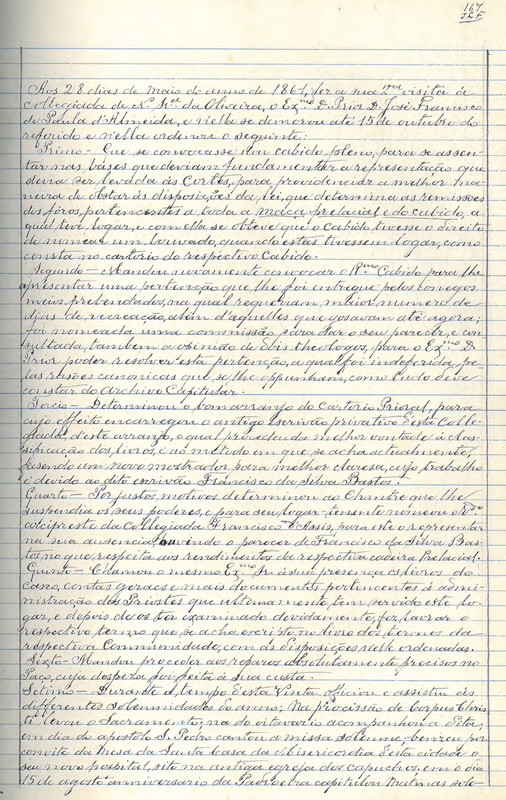 167
Aos 28 dias de Maio do anno de 1861, fez a sua 2ª visita á
Collegiada de N. Srª da Oliveira, o Exmo D. Prior D. José Francisco
de Paula d'Almeida, e n'ella se demorou até 15 de outubro do
referido e n'ella ordenou o seguinte:
Primo - Que se convocasse um cabido pleno, para se assen-
tar nas bases que deviam fundamentar a representação que
devia ser levada ás Cortes, para providenciar a melhor ma-
neira de obstar ás disposições da lei, que determina as remissões
dos fóros, pertencentes a toda a massa prelacial e do cabido, a
qual teve logar, e com ella se obteve que o Cabido tivesse o direito
de nomear um louvado, quando estas tivessem logar, como
consta no cartorio do respectivo Cabido.
Segundo - Mandou novamente convocar o Rmo Cabido para lhe
apresentar uma pertenção que lhe foi entregue pelos conegos
meios prebendados, na qual requeriam, maior numero de
dias de recreação, alem d'aquelles que gosavam até agora;
foi nomeada uma commissão para dar o seu parecer, e con-
sultada, tambem a opinião de dois theologos, para o Exmo D.
Prior poder resolver esta pertenção, a qual foi indeferida, pe-
las rasões canonicas que se lhe oppunham, como tudo deve
constar do Archivo Capitular.
Tercio - Determinou o bom arranjo do Cartorio Prioral, para
cujo effeito encarregou o antigo escrivão privativo d'esta Colle-
giada, d'este arranjo, o qual procedeu da melhor vontade á clas-
sificação dos livros, e ao methodo em que se acha actualmente,
fasendo um novo mostrador para melhor claresa, cujo trabalho
é devido ao dito escrivão Francisco da Silva Bastos.
Quarto - Por justos motivos determinou ao Chantre que lhe
suspendia os seus poderes, e para seu logar-tenente nomeou o
arcipreste da Collegiada Francisco d'Assis, para este o representar
na sua ausencia, ouvindo o parecer de Francisco da Silva Bas-
tos no que respeita aos rendimentos da respectiva cadeira Prelacial.
Quinto - Chamou o mesmo Exmo Sr. á sua presença os livros do
casco, contas geraes e mais documentos pertencentes á admi-
nistração dos Priostes que ultimamente tem servido este lo-
gar, e depois de os ter examinado devidamente, fez lavrar o
respectivo termo que se acha escripto no livro dos termos da
respectiva Communidade, com as disposições n'elle ordenadas.
Sexto - Mandou proceder aos reparos absolutamente precisos no
Paço, cuja despeza foi feita á sua custa.
Setimo - Durante o tempo d'esta Visita officiou e assistiu ás
differentes solemnidades do anno; Na procissão de Corpus Chris-
ti levou o Sacramento; na do oitavario acompanhou a Esta;
em dia do apostolo S. Pedro cantou a missa solemne, benzeu por
convite da Mesa da Santa Casa da Misericordia d'esta cidade o
seu novo hospital, sito na antiga egreja dos capuchos, em o dia
15 de agosto anniversario da Padroeira capitulou Matinas sole-